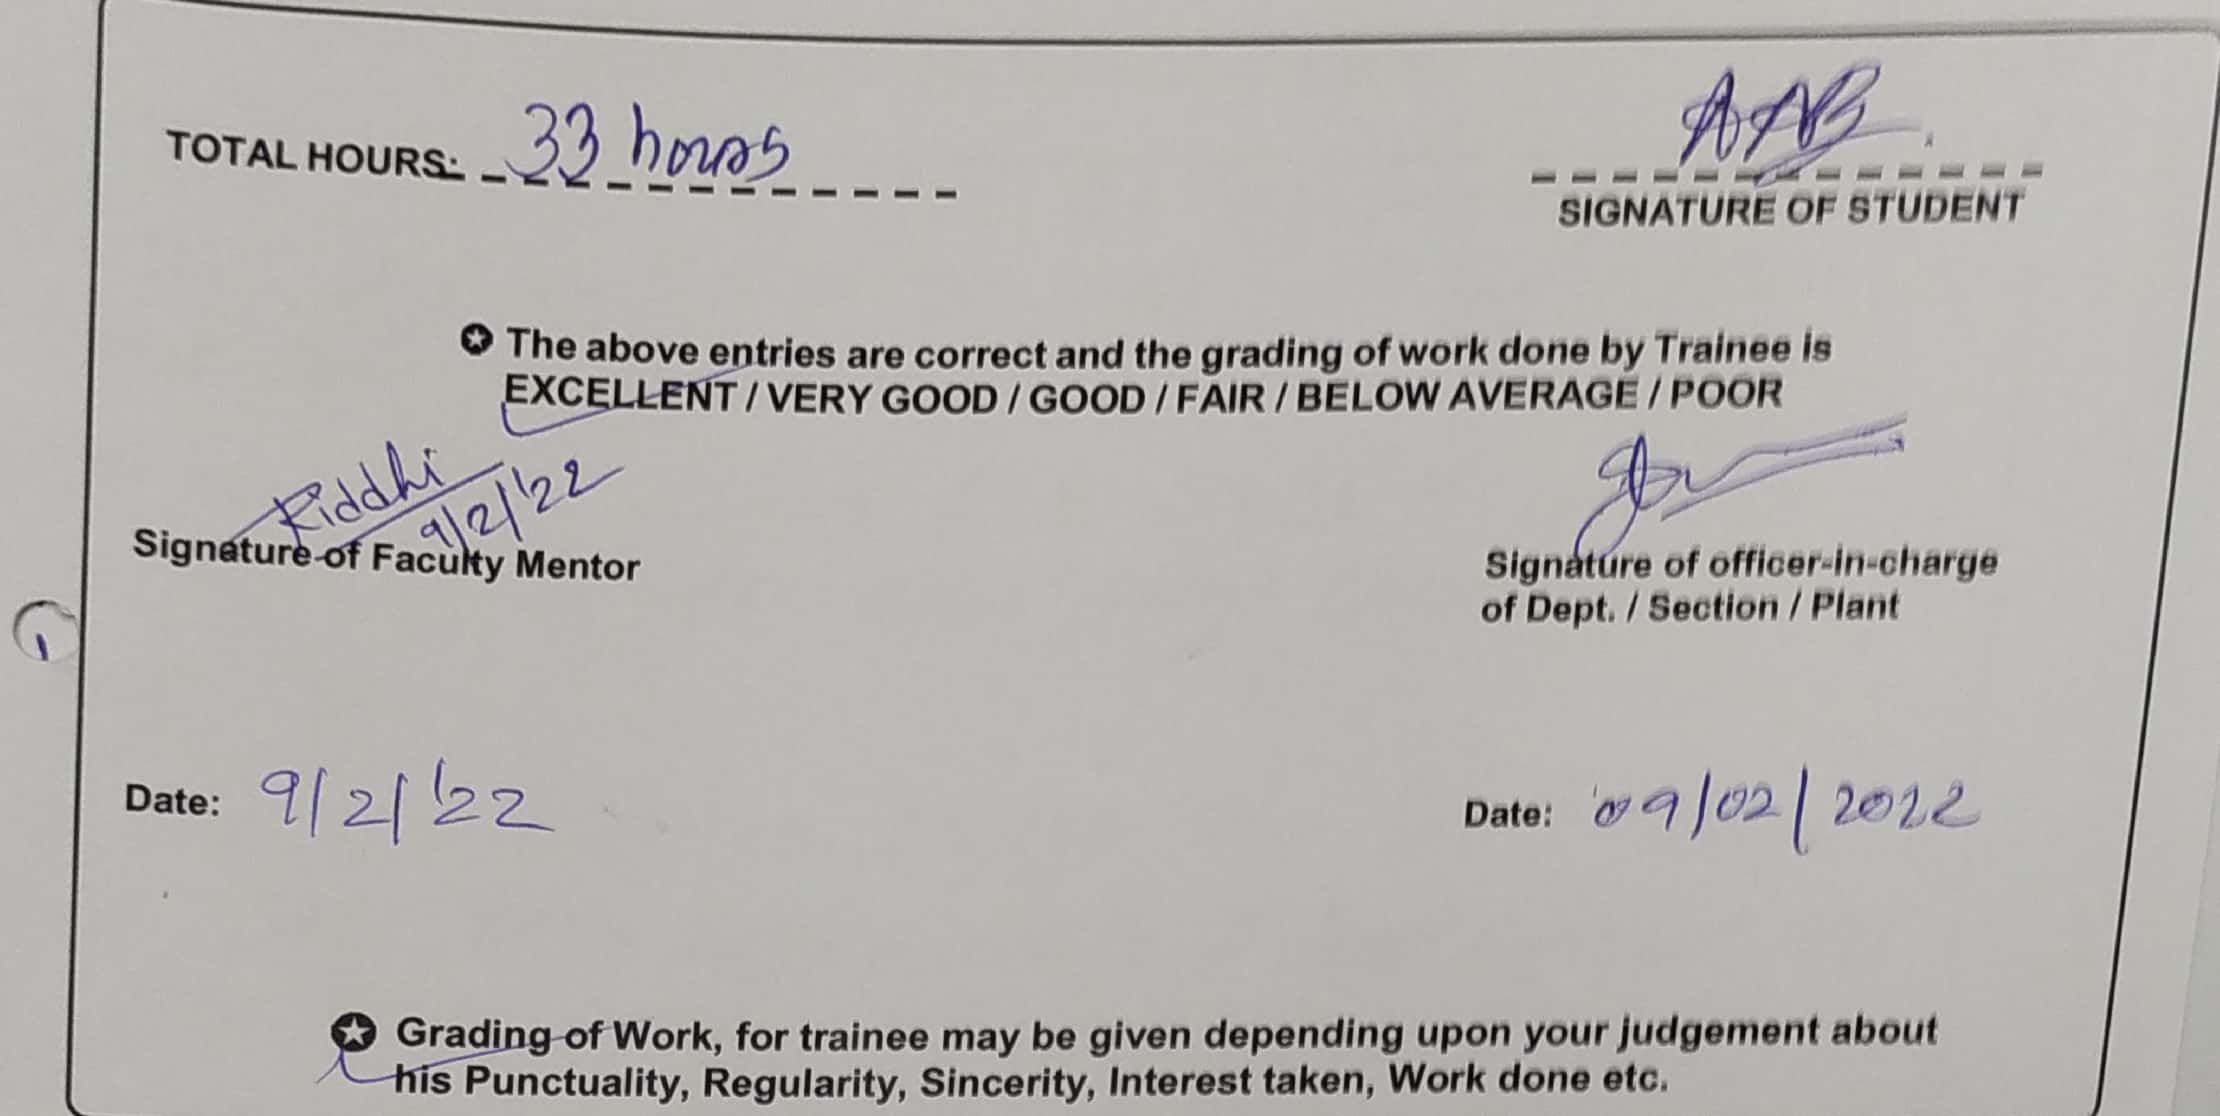 TOTAL HOURS: 33 hours
AAB
SIGNATURE OF STUDENT
The above entries are correct and the grading of work done by Trainee is
EXCELLENT / VERY GOOD / GOOD / FAIR / BELOW AVERAGE / POOR
Riddhi
9/2/'22
Signature of Faculty Mentor
Signature of officer-in-charge
of Dept. / Section / Plant
Date: 9/2/'22
Date: 09/02/2022
Grading of Work, for trainee may be given depending upon your judgement about
his Punctuality, Regularity, Sincerity, Interest taken, Work done etc.